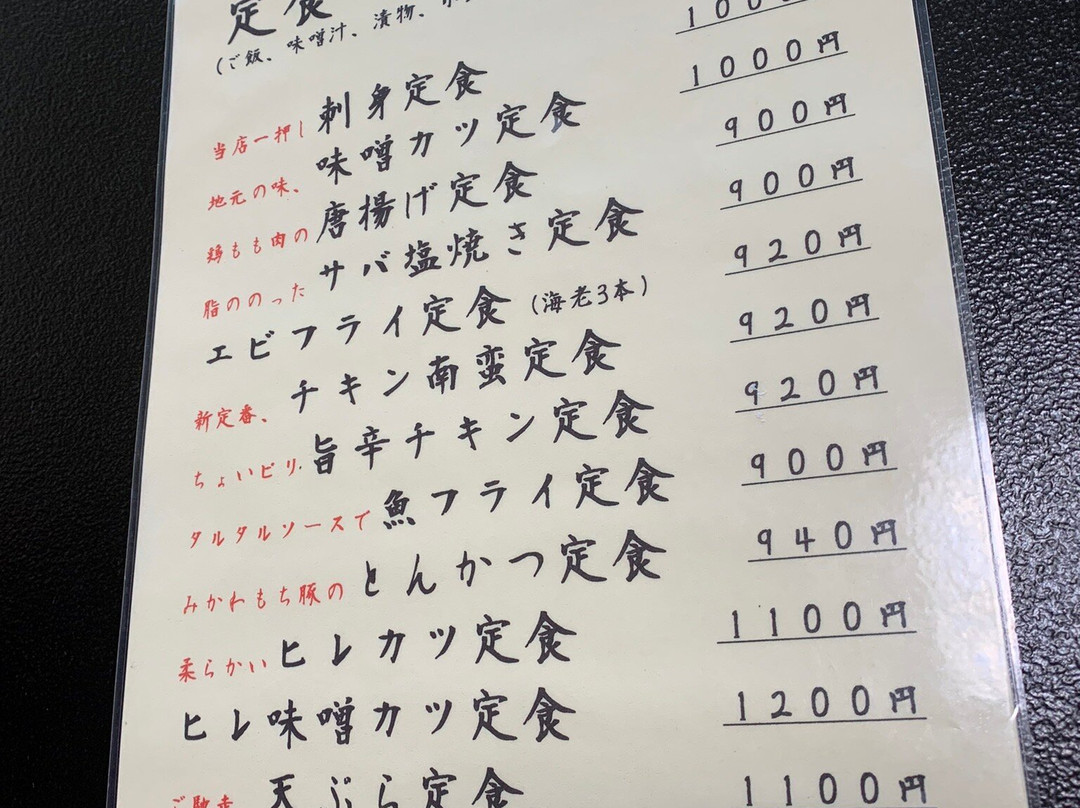 定食
(ご飯、味噌汁、漬物、
当店一押し 刺身定食 1000
地元の味、味噌カツ定食 1000円
鶏もも肉の 唐揚げ定食 900円
脂ののった サバ塩焼き定食 900円
エビフライ定食 (海老3本) 920円
新定番、チキン南蛮定食 920円
ちょいピリ 旨辛チキン定食 920円
タルタルソースで 魚フライ定食 900円
みかわもち豚の とんかつ定食 940円
柔らかい ヒレカツ定食 1100円
ヒレ味噌カツ定食 1200円
ご馳走 天ぷら定食 1100円